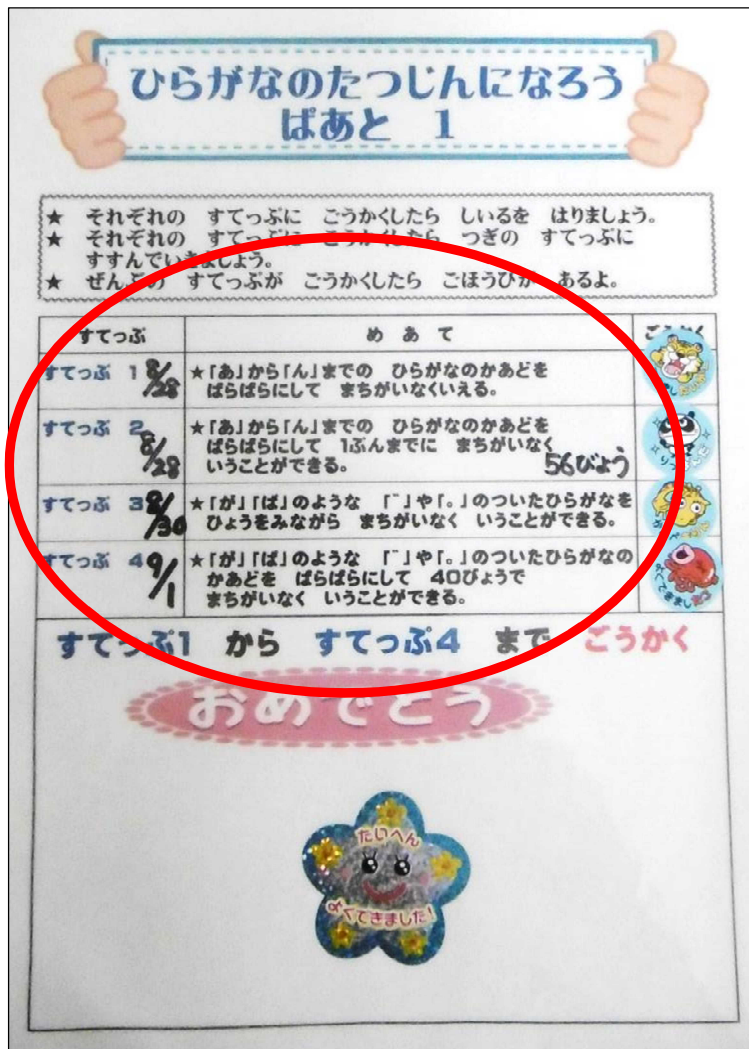 ひらがなのたつじんになろう
ぱあと 1
★ それぞれの すてっぷに ごうかくしたら しいるを はりましょう。
★ それぞれの すてっぷに ごうかくしたら つぎの すてっぷに
すすんでいきましょう。
★ ぜんぶの すてっぷが ごうかくしたら ごほうびが あるよ。
すてっぷ めあて ごうかく
すてっぷ 1 8/28 ★「あ」から「ん」までの ひらがなのかあどを
ばらばらにして まちがいなくいえる。
すてっぷ 2 ★「あ」から「ん」までの ひらがなのかあどを
8/28 ばらばらにして 1ぷんまでに まちがいなく
いうことができる。 56びょう
すてっぷ 3 8/30 ★「が」「ば」のような 「゛」や「。」のついたひらがなを
ひょうをみながら まちがいなく いうことができる。
すてっぷ 4 9/1 ★「が」「ば」のような 「゛」や「。」のついたひらがなの
かあどを ばらばらにして 40びょうで
まちがいなく いうことができる。
すてっぷ1 から すてっぷ4 まで ごうかく
おめでとう
たいへん
よくできました!